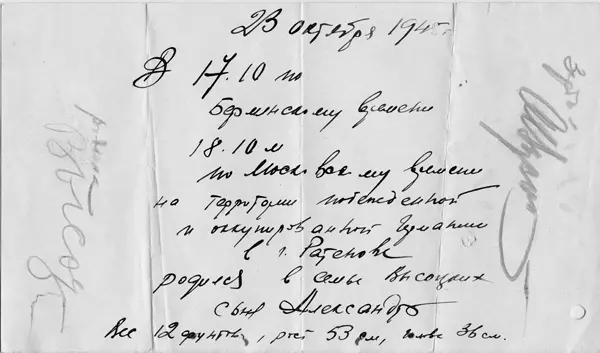 23 октября 1945 г.
В 17.10 по
Берлинскому времени
18.10 м
по Московскому времени
на территории побежденной
и оккупированной Германии
в г. Ратенов
родился в семье Высоцких
сын Александр
Вес 12 фунтов, рост 53 см, голова 36 см.